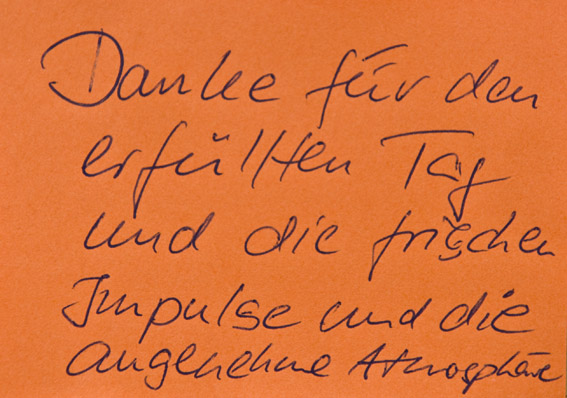 Danke für den
erfüllten Tag
und die frischen
Impulse und die
angenehme Atmosphäre